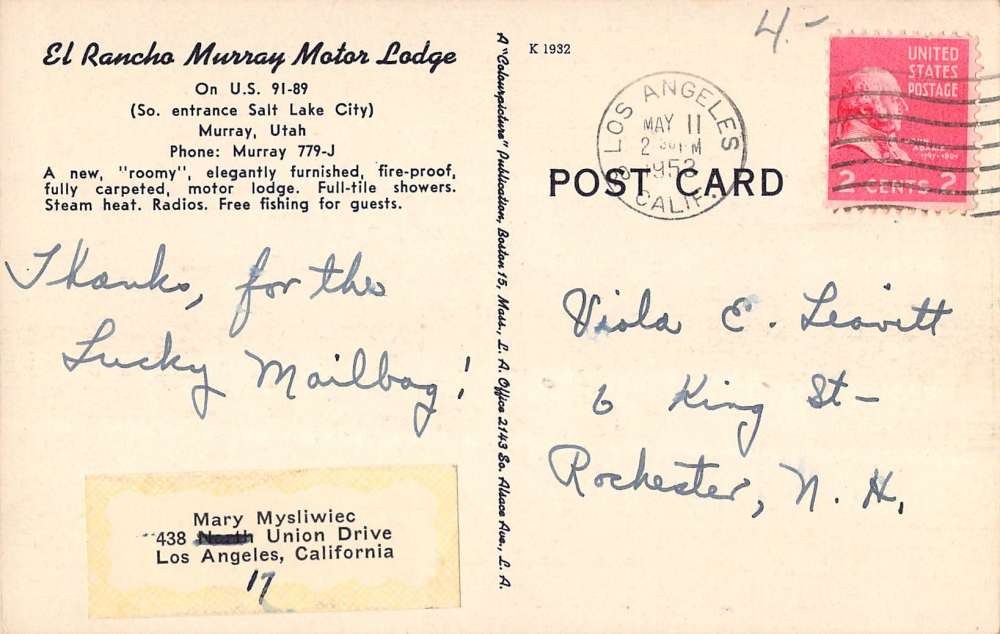 El Rancho Murray Motor Lodge
On U.S. 91-89
(So. entrance Salt Lake City)
Murray, Utah
Phone: Murray 779-J
A new, "roomy", elegantly furnished, fire-proof,
fully carpeted, motor lodge. Full-tile showers.
Steam heat. Radios. Free fishing for guests.
Thanks, for the
Lucky Mailbag!
Mary Mysliwiec
438 North Union Drive
Los Angeles, California
17
A "Colourpicture" Publication, Boston 15, Mass., L. A. Office 2143 So. Alsace Ave., L. A.
K 1932
4.-
LOS ANGELES
MAY 11
2 PM
CALIF.
UNITED
STATES
POSTAGE
ADAMS
2 CENTS 2
POST CARD
Viola E. Leavitt
6 King St-
Rochester, N. H.